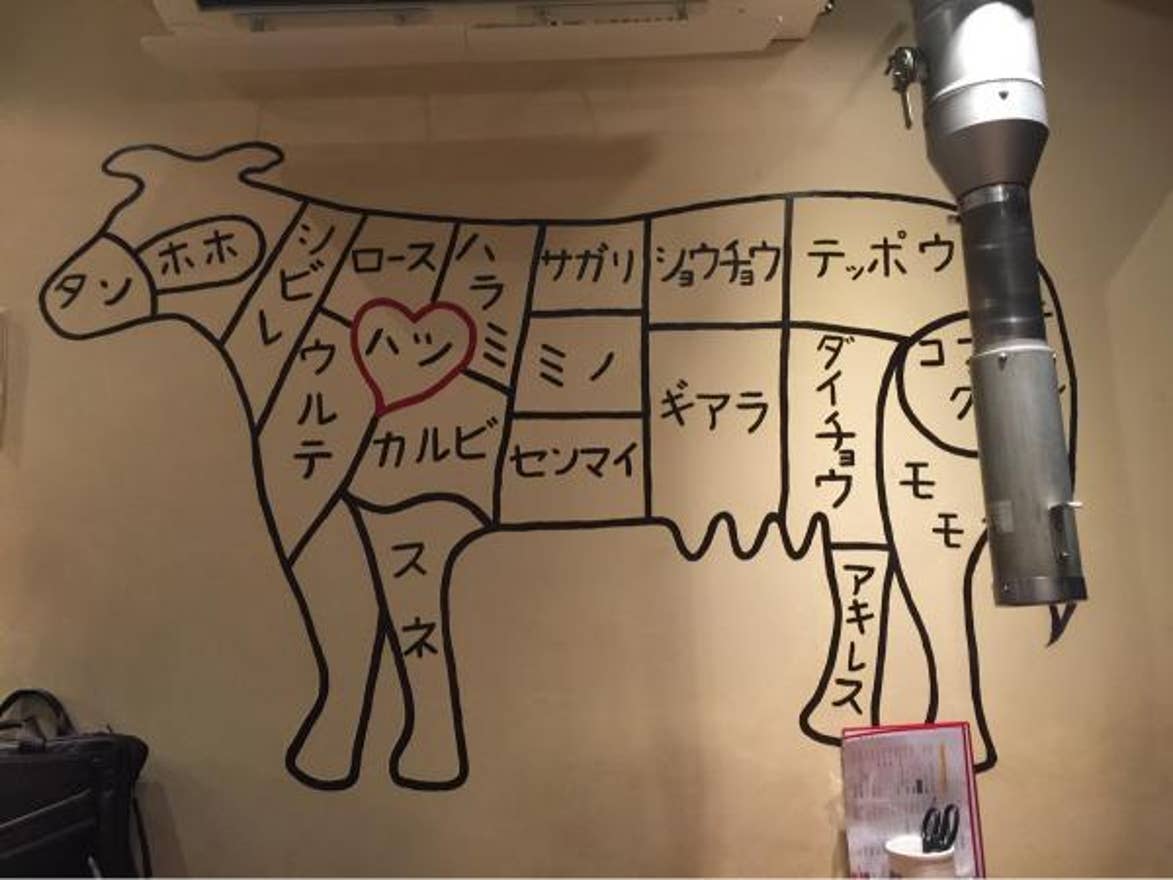 タン
ホホ
シビレ
ロース
ハラミ
サガリ
ショウチョウ
テッポウ
ハツ
ウルテ
カルビ
ミノ
センマイ
ギアラ
ダイチョウ
モモ
スネ
アキレス